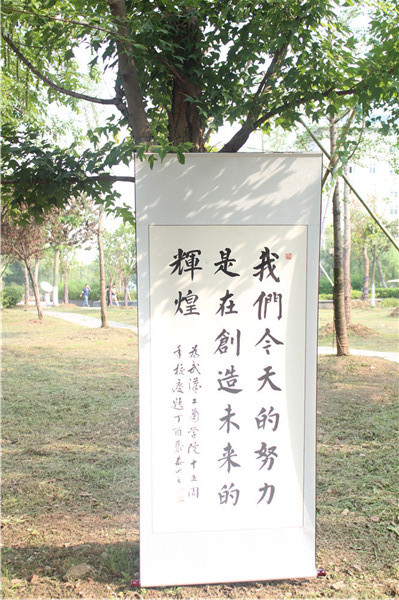 我們今天的努力
是在創造未来的
輝煌
為武漢工商学院十五周
年校慶題丁酉